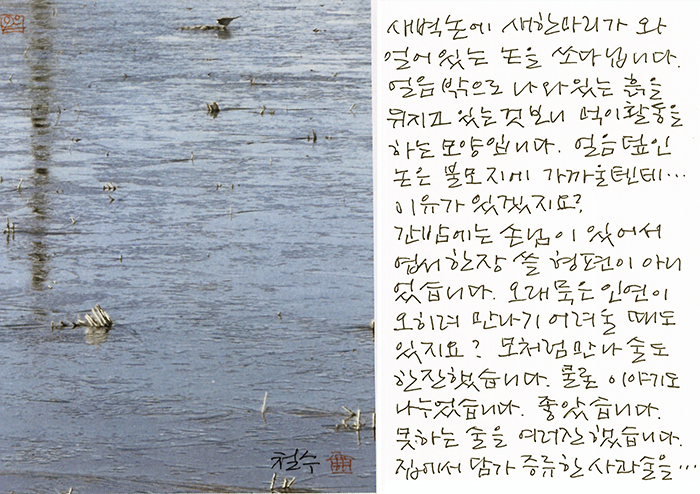 철수
새벽논에 새한마리가 와
얼어있는 논을 쏘다닙니다.
얼음밖으로 나와있는 흙을
뒤지고 있는것 보니 먹이활동을
하는 모양입니다. 얼음덮인
논은 불모지에 가까울텐데…
이유가 있겠지요?
간밤에는 손님이 있어서
엽서한장 쓸 형편이 아니
었습니다. 오래묵은 인연이
오히려 만나기 어려울 때도
있지요? 모처럼 만나 술도
한잔했습니다. 물론 이야기도
나누었습니다. 좋았습니다.
못하는 술을 여러잔 했습니다.
집에서 담가 증류한 사과술을…